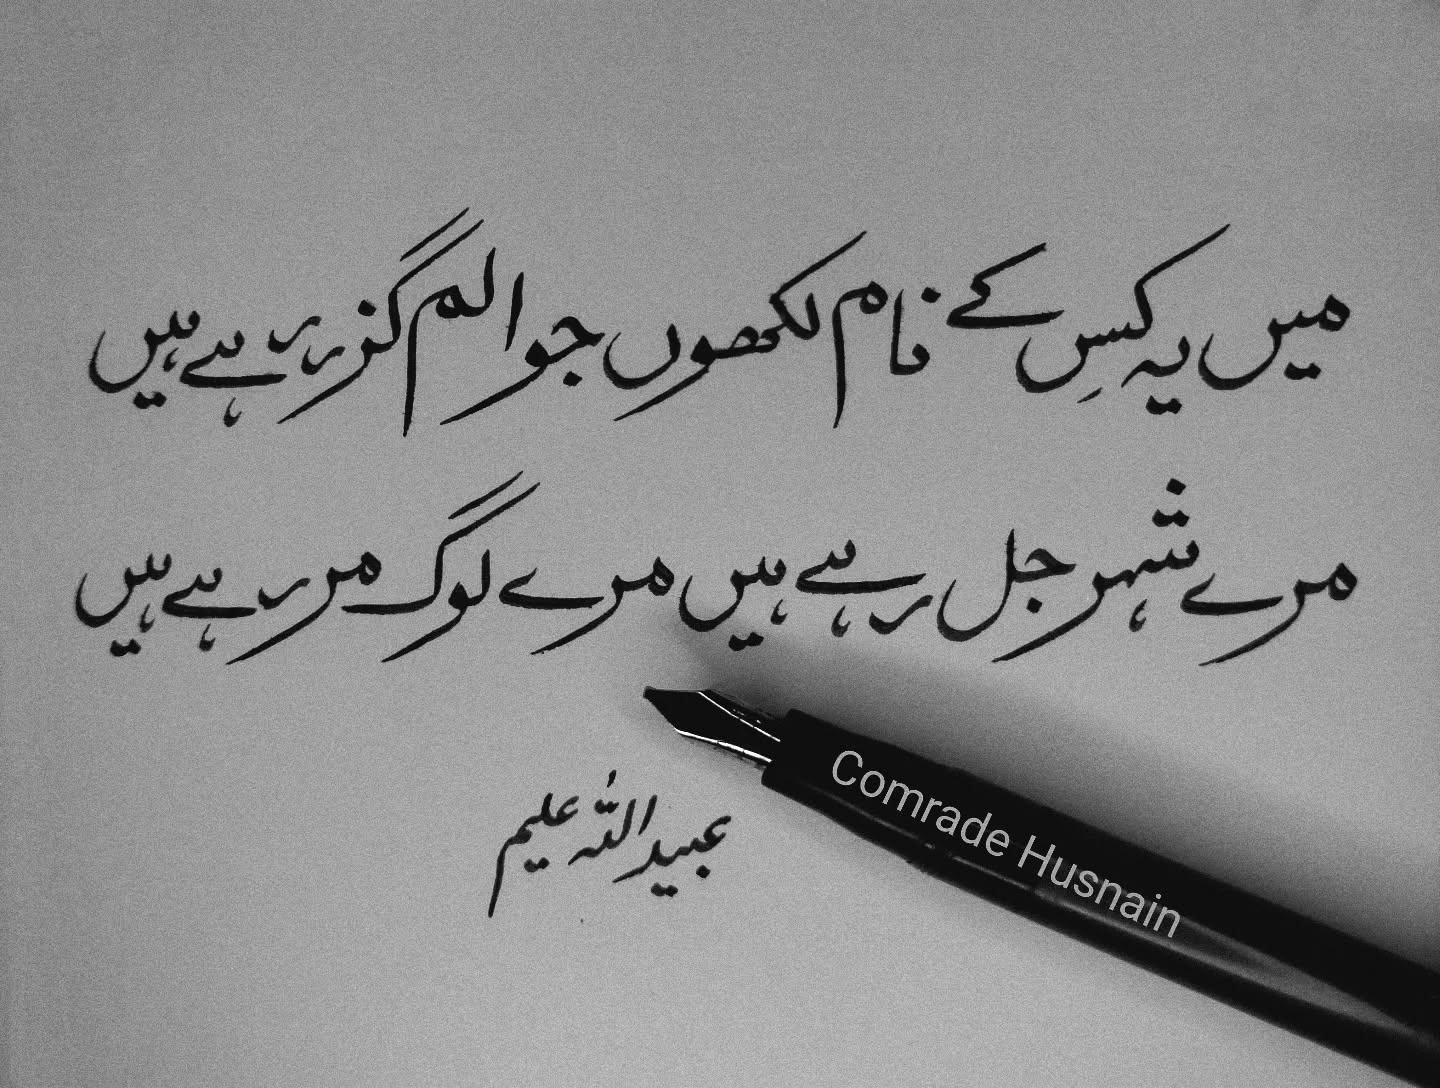 میں یہ کسِ کے نام لکھوں جو الم گزر رہے ہیں
مرے شہر جل رہے ہیں مرے لوگ مر رہے ہیں
عبید اللہ علیم
Comrade Husnain